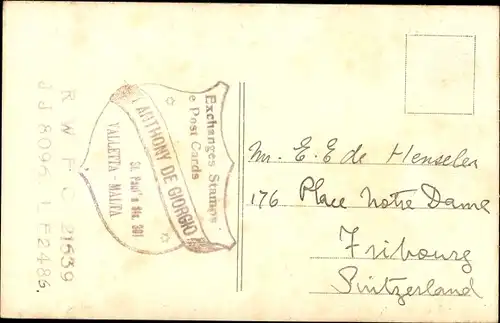 R W P C 21639
J J 8096 L F2486.
Exchanges Stamps
e Post Cards
ANTHONY DE GIORGIO
St. Paul's Str. 391
VALLETTA - MALTA
Mr. E. E de Henseler
176 Place Notre Dame
Fribourg
Switzerland